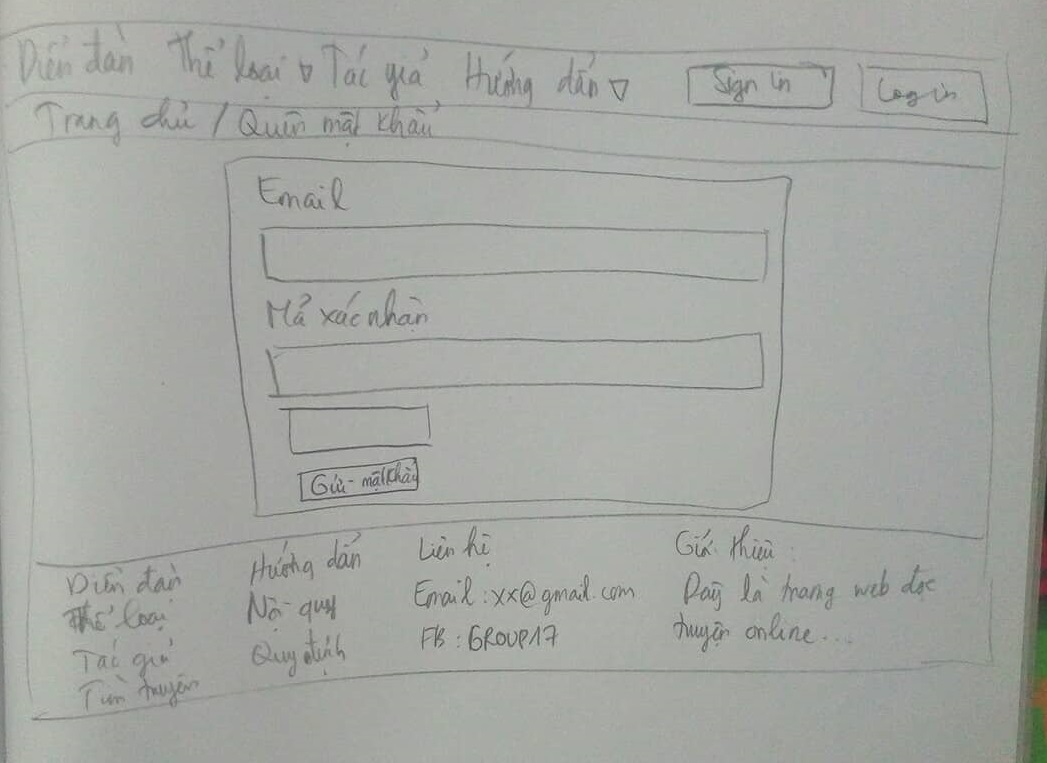 Diễn đàn Thể loại ▽ Tác giả Hướng dẫn ▽ Sign in Log in
Trang chủ / Quên mật khẩu
Email
Mã xác nhận
Gửi mật khẩu
Diễn đàn
Thể loại
Tác giả
truyện
Hướng dẫn
Nội quy
Quy định
Liên hệ
Email : xx@gmail.com
FB : GROUP17
Giới thiệu :
Đây là trang web đọc
truyện online...